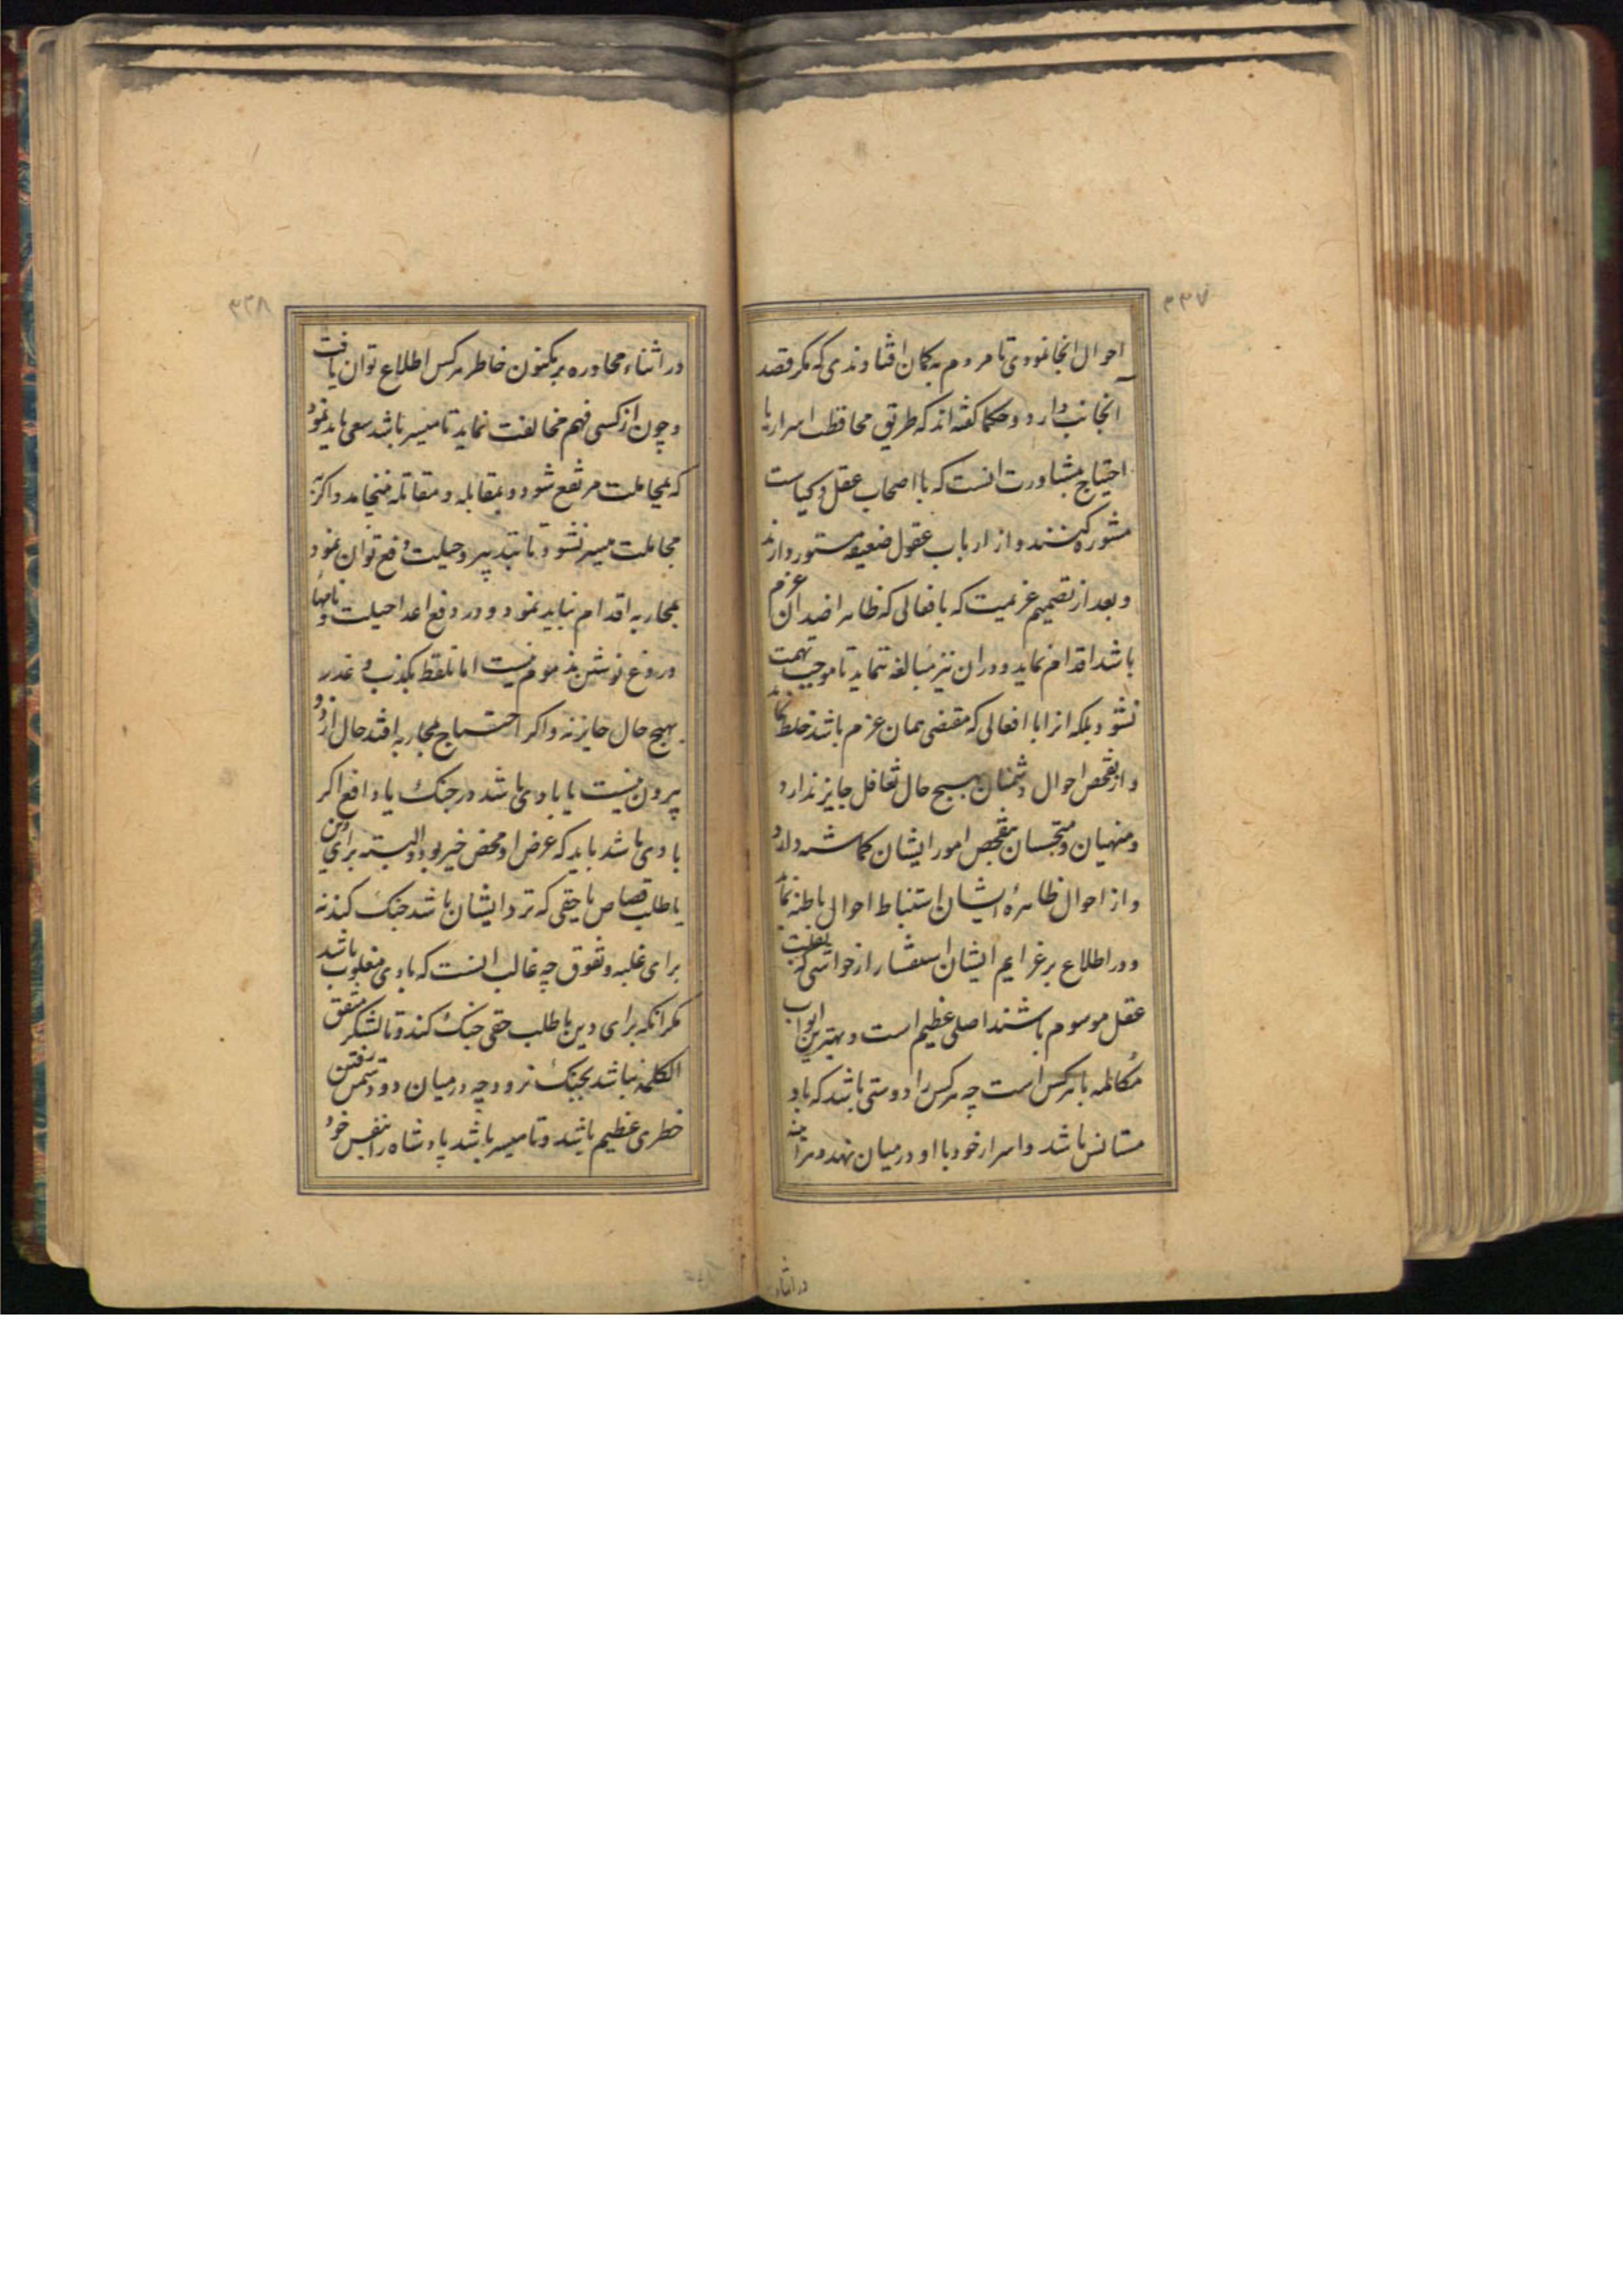 ۳۳۷
احوال انجا نمودی تا مردم به کمان افتاوندی که مکر قصد
انجانب دارد و حکما کفته اند که طریق محافظت اسرار با
احتیاج بمشاورت انست که با اصحاب عقل و کیاست
مشوره کنند و از ارباب عقول ضعیفه مستور دارند
و بعد از تصمیم عزیمت که بافعالی که ظاهرا ضد آن عزم
باشد اقدام نماید و دران نیز مبالغه ننماید تا موجب تهمت
نشود بلکه انرا با افعالی که مقتضی همان عزم باشد خلط کند
و از تفحص احوال دشمنان بهیچ حال تغافل جایز ندارد
و منهیان و متجسسان بتفحص امور ایشان کماشته دارد
و از احوال ظاهرهٔ ایشان استنباط احوال باطنه نماید
و در اطلاع بر عزایم ایشان استفسار از حواشی که بقلت
عقل موسوم باشند اصلی عظیم است و بهترین ابواب
مکالمه با هرکس است چه هرکس را دوستی باشد که باو
مستانس باشد و اسرار خود با او در میان نهد و هراینه
در اثناء
۳۳۸
در اثناء محاوره بر مکنون خاطر هرکس اطلاع توان یافت
و چون از کسی فهم مخالفت نماید تا میسر باشد سعی باید نمود
که بمجاملت مرتفع شود و بمقابله و مقاتله نینجامد و اکر به
مجاملت میسر نشود تا بتدبیر و حیلت دفع توان نمود
بمحاربه اقدام نباید نمود و در دفع اعدا حیلت و نامهاء
دروغ نوشتن مذموم نیست اما تلفظ بکذب و غدر
بهیچ حال جایز نه و اکر احتیاج بمحاربه افتد حال از دو
بیرون نیست یا بادی باشد در جنک یا دافع اکر
بادی باشد باید که غرض او محض خیر بود و البته برای دین
یا طلب قصاص یا حقی که نزد ایشان باشد جنک کند نه
برای غلبه و تفوق چه غالب انست که بادی مغلوب باشد
مکر انکه برای دین یا طلب حقی جنک کند و تا لشکر متفق
الکلمه نباشد بجنک نرود چه در میان دو دشمن رفتن
خطری عظیم باشد و تا میسر باشد پادشاه را بنفس خود